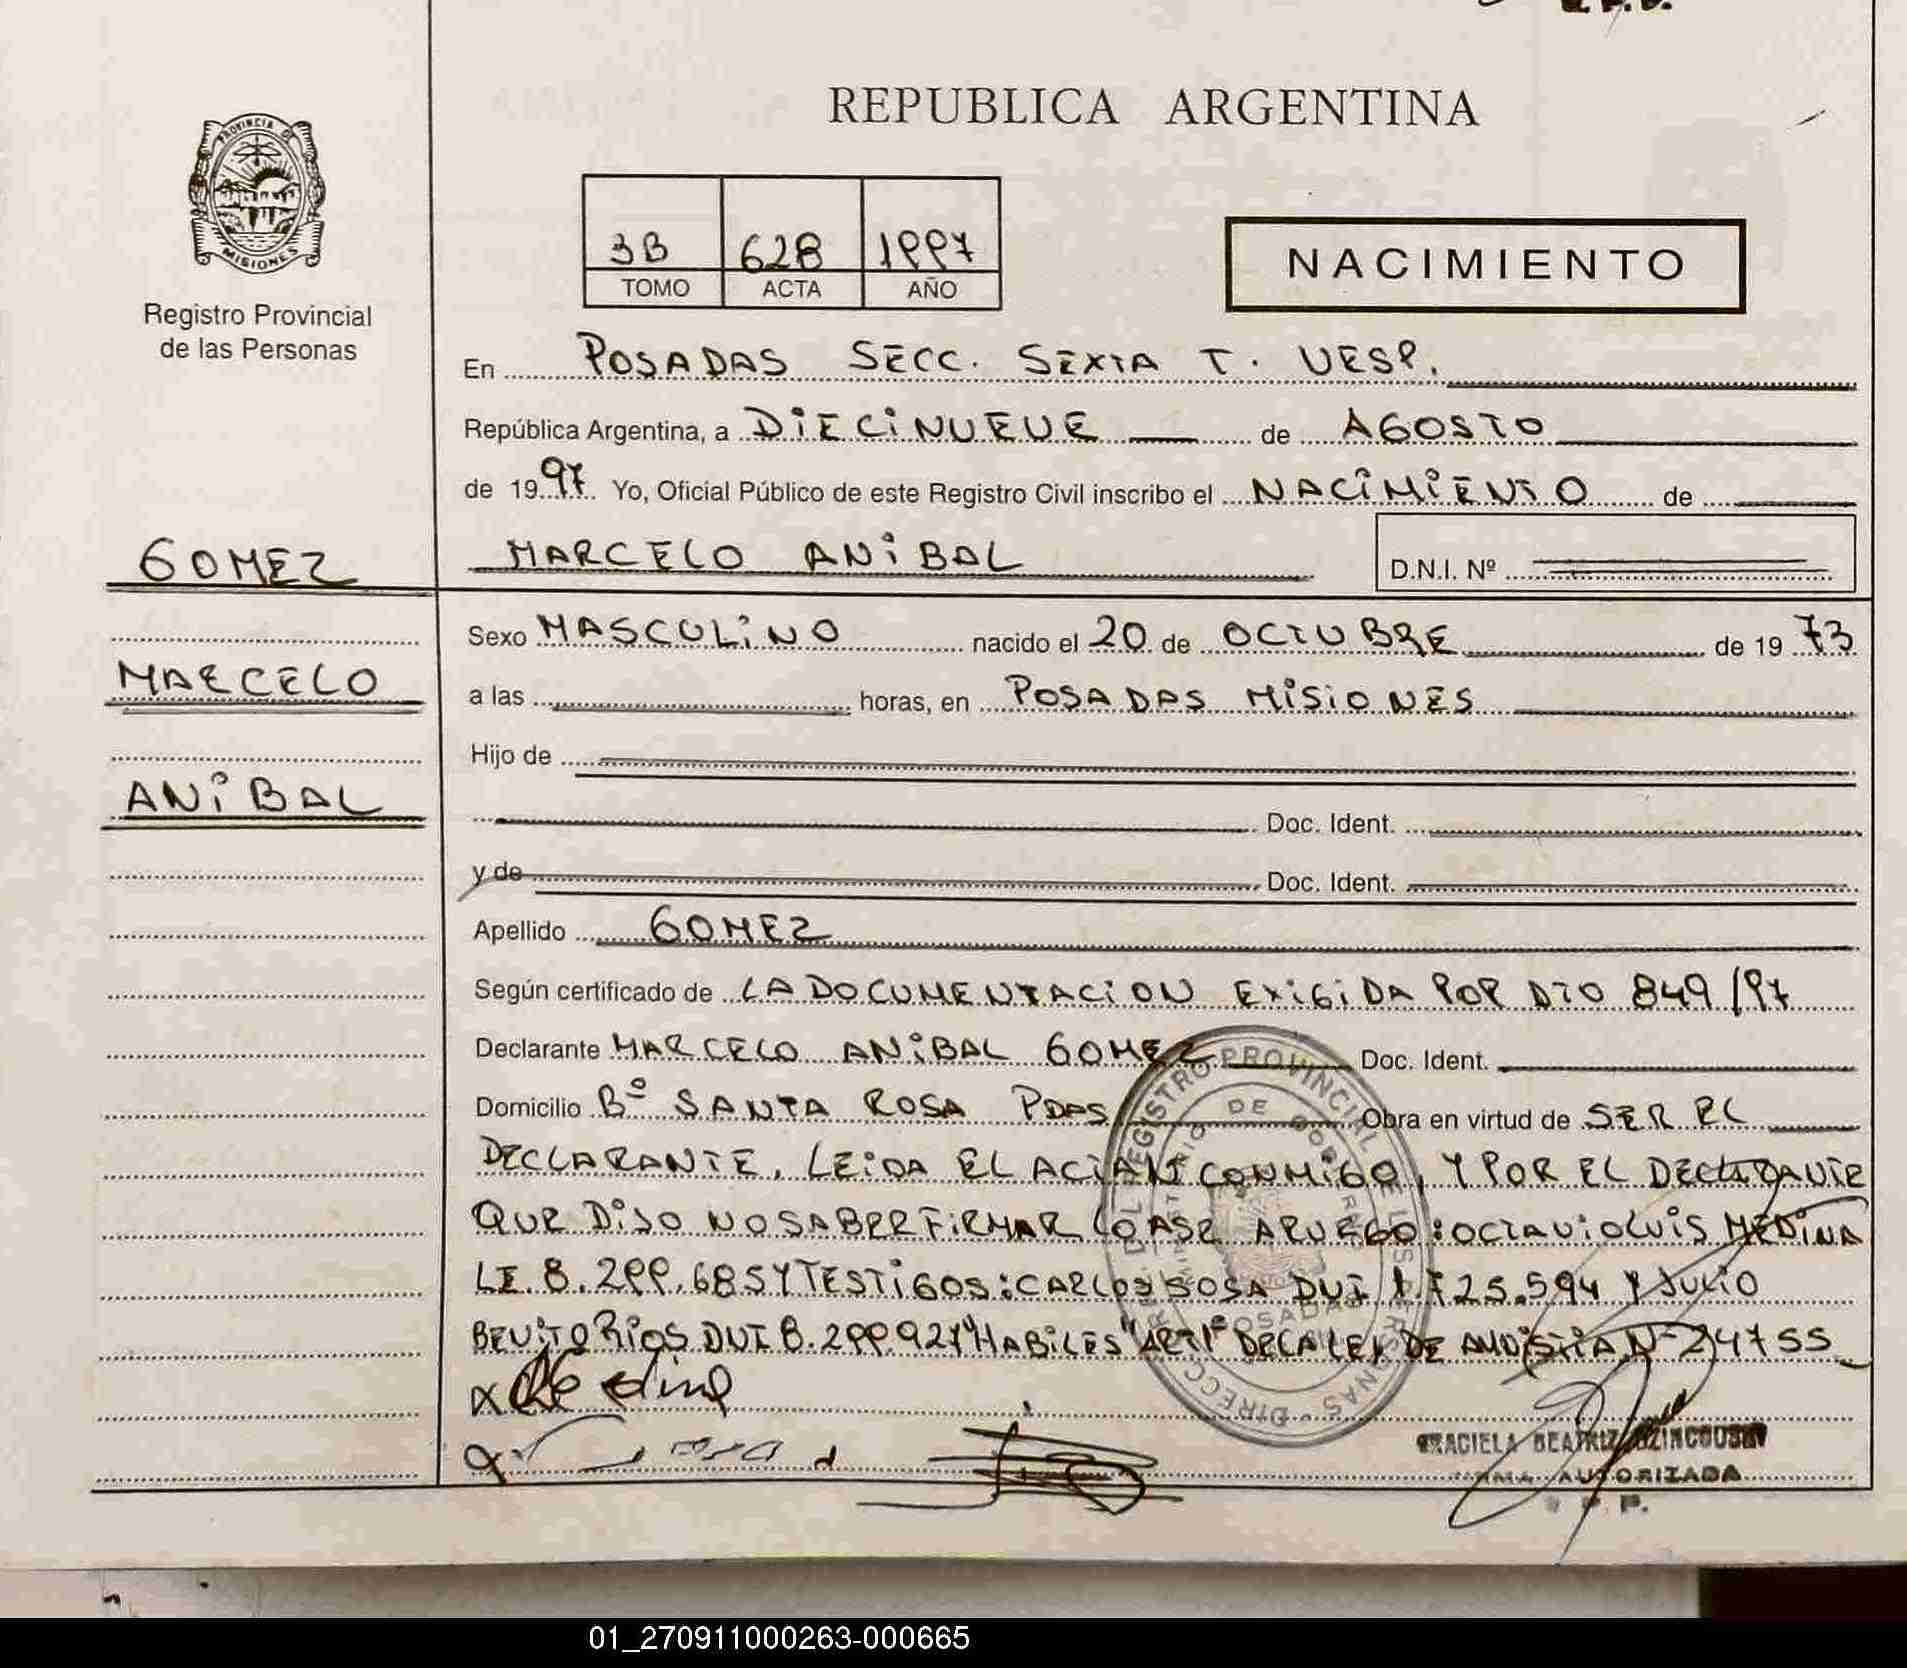 REPUBLICA ARGENTINA
PROVINCIA DE
MISIONES
Registro Provincial
de las Personas
3B 628 1997
TOMO ACTA AÑO
NACIMIENTO
En POSADAS SECC. SEXTA T. VESP.
República Argentina, a DIECINUEVE de AGOSTO
de 1997 Yo, Oficial Público de este Registro Civil inscribo el NACIMIENTO de
GOMEZ
MARCELO ANIBAL
D.N.I. Nº
Sexo MASCULINO nacido el 20 de OCTUBRE de 1973
MARCELO
a las horas, en POSADAS MISIONES
Hijo de
ANIBAL
Doc. Ident.
y de Doc. Ident.
Apellido GOMEZ
Según certificado de LA DOCUMENTACION EXIGIDA POR DTO 849/97
Declarante MARCELO ANIBAL GOMEZ Doc. Ident.
Domicilio Bº SANTA ROSA PDAS Obra en virtud de SER EL
DECLARANTE. LEIDA EL ACTA CONMIGO, Y POR EL DECLARANTE
QUE DIJO NO SABER FIRMAR LO ASE A RUEGO: OCTAVIO LUIS MEDINA
LE. 8.299.685 Y TESTIGOS: CARLOS SOSA DUI 1.725.594 Y JULIO
BENITO RIOS DUI 8.299.927 "HABILES" ART 1º DE LA LEY DE AMNISTIA Nº 24755
DIRECC. DEL REGISTRO PROVINCIAL DE LAS PERSONAS
MINISTERIO DE GOBIERNO
POSADAS
GRACIELA BEATRIZ
FIRMA AUTORIZADA
R. P. P.
01_270911000263-000665